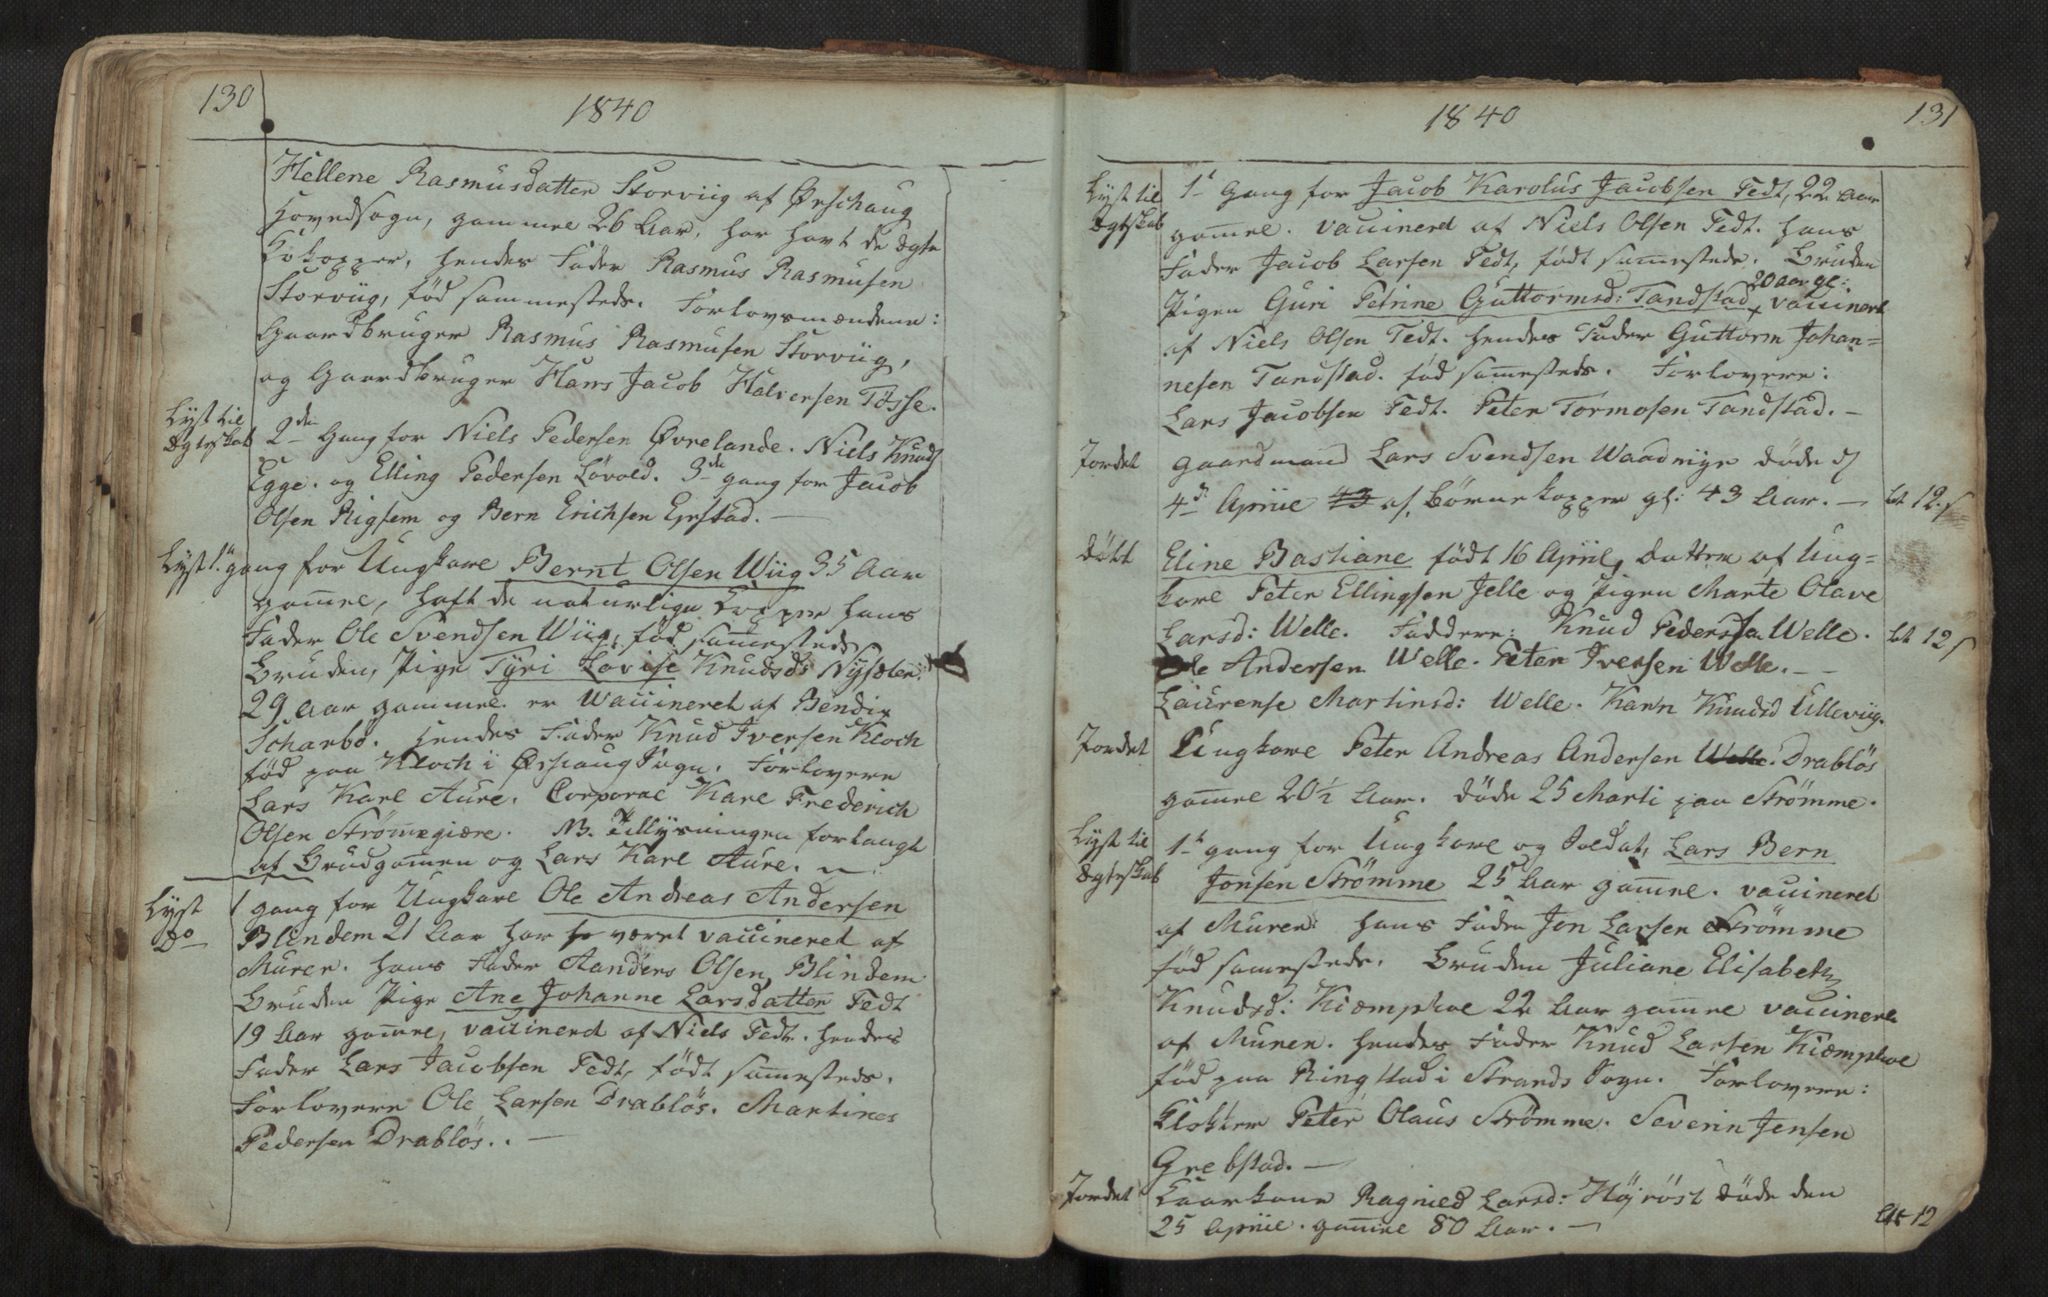 130
1840
Hellene Rasmusdatter Storviig af Ørschaug
Hovedsogn, gammel 26 Aar, har havt de ægte
Kokopper, hendes Fader Rasmus Rasmusen
Storviig, fød sammesteds. Forlovsmændene:
Gaardbruger Rasmus Rasmusen Storviig,
og Gaardbruger Hans Jacob Halversen Tøsse.
Lyst til
Ægteskab
2den Gang for Niels Pedersen Øvrelande. Niels Knuds
Egge. og Elling Pedersen Løvold. 3de gang for Jacob
Olsen Rigsem og Bern Erichsen Giestad. —
Lyst 1te gang for Ungkarl Bernt Olsen Wiig 35 Aar
gam̄el, haft de naturlige Kopper hans
Fader Ole Svendsen Wiig, fød sam̄esteds
Bruden, Pige Lovise Knudsd: Nysæter:
29 Aar gammel. er Waccineret af Bendix
Scharbø. Hendes Fader Knud Iversen Kloch
fød paa Kloch i Ørschaug Sogn. Forlovere
Lars Karl Aure. Corporal Karl Frederich
Olsen Strøm̄egiære. NB. Tillysningen forlangt
af Brudgom̄en og Lars Karl Aure.
Lyst
Do
1 gang for Ungkarl Ole Andreas Andersen
Blindem 21 Aar har været vaccineret af
Muren. hans Fader Aanders Olsen Blindem
Bruden Pige Ane Johanne Larsdatter Fedt
19 Aar gam̄el, vaccinerd af Niels Fedt. hendes
Fader Lars Jacobsen Fedt, født sam̄esteds.
Forlovere Ole Larsen Drabløs. Martines
Pedersen Drabløs. —
1840
131
Lyst til
Ægteskab
1te Gang for Jacob Karolus Jacobsen Fedt, 22 Aar
gam̄el. vaccinerd af Niels Olsen Fedt. hans
Fader Jacob Larsen Fedt, født sam̄esteds. Bruden
20 aar gl:
Pigen Guri Petrine Guttormsd: Tandstad, vaccinert
af Niels Olsen Fedt. hendes Fader Guttorm Johan=
nesen Tandstad. fød sam̄esteds. Forlovere:
Lars Jacobsen Fedt. Peter Tormosen Tandstad. —
Jordet
Gaardmand Lars Svendsen Waadmyr døde d
4de April 43 af Børnekopper gl: 43 Aar. — bt 12 s
Døbt
Eline Bastiane født 16 April, Datter af Ung=
karl Peter Ellingsen Jelle og Pigen Marte Olave
Larsd: Welle. Faddere: Knud Pedersen Welle. bt 12 s
Ole Andersen Welle. Peter Iversen Welle. —
Laurense Martinsd: Welle. Karn Knudsd Ulleviig.
Jordet
Ungkarl Peter Andreas Andersen Welle. Drabløs
gam̄el 20½ Aar. døde 25 Marti paa Strømme.
Lyst til
Ægteskab
1te gang for Ungkarl og Soldat, Lars Bern
Jonsen Strømme 25 Aar gam̄el. vaccinered
af Muren. hans Fader Jon Larsen Strømme
fød sam̄esteds. Bruden Juliane Elisabeth
Knudsd: Kiæmphoe 22 Aar gam̄el vaccinere
af Muren. hendes Fader Knud Larsen Kiæmphoe
fød paa Ringstad i Strands Sogn. Forlovere:
Klokker Peter Olaus Strømme. Severin Jensen
Grebstad. —
Jordet
Kaarkone Ragnild Larsd: Højrøst døde den
25 April. gam̄el 80 Aar. — bt 12